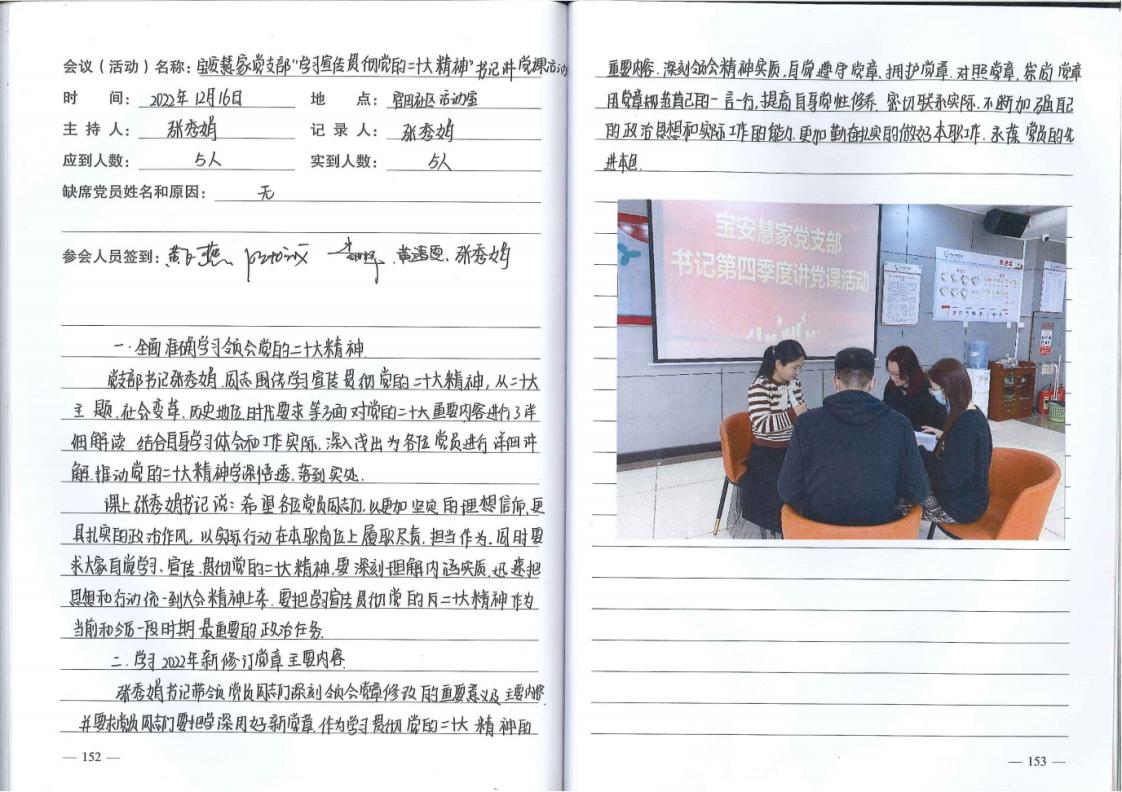 会议（活动）名称：宝安慧家党支部"学习宣传贯彻党的二十大精神"书记讲党课活动
时 间：2022年12月16日 地 点：官田社区活动室
主 持 人：张秀娟 记 录 人：张秀娟
应到人数：5人 实到人数：5人
缺席党员姓名和原因：无
参会人员签到： 张秀娟
一. 全面准确学习领会党的二十大精神
党支部书记张秀娟同志围绕学习宣传贯彻党的二十大精神，从二十大
主题、社会变革、历史地位、时代要求等方面对党的二十大重要内容进行了详
细解读，结合自身学习体会和工作实际，深入浅出为各位党员进行详细讲
解，推动党的二十大精神学深悟透，落到实处.
课上张秀娟书记说：希望各位党员同志们，以更加坚定的理想信仰，更
具扎实的政治作风，以实际行动在本职岗位上履职尽责，担当作为，同时要
求大家自觉学习、宣传、贯彻党的二十大精神，要深刻理解内涵实质，迅速把
思想和行动统一到大会精神上来，要把学习宣传贯彻党的二十大精神作为
当前和今后一段时期最重要的政治任务.
二. 学习2022年新修订党章主要内容
张秀娟书记带领党员同志们深刻领会党章修改的重要意义及主要内容
并要求党员同志们要把学深用好新党章，作为学习贯彻党的二十大精神的
— 152 —
重要内容，深刻领会精神实质，自觉遵守党章，拥护党章，对照党章，崇尚党章
用党章规范自己的一言一行，提高自身党性修养，密切联系实际，不断加强自己
的政治思想和实际工作的能力，更加勤奋扎实的做好本职工作，永葆党员的先
进本色.
宝安慧家党支部
书记第四季度讲党课活动
— 153 —